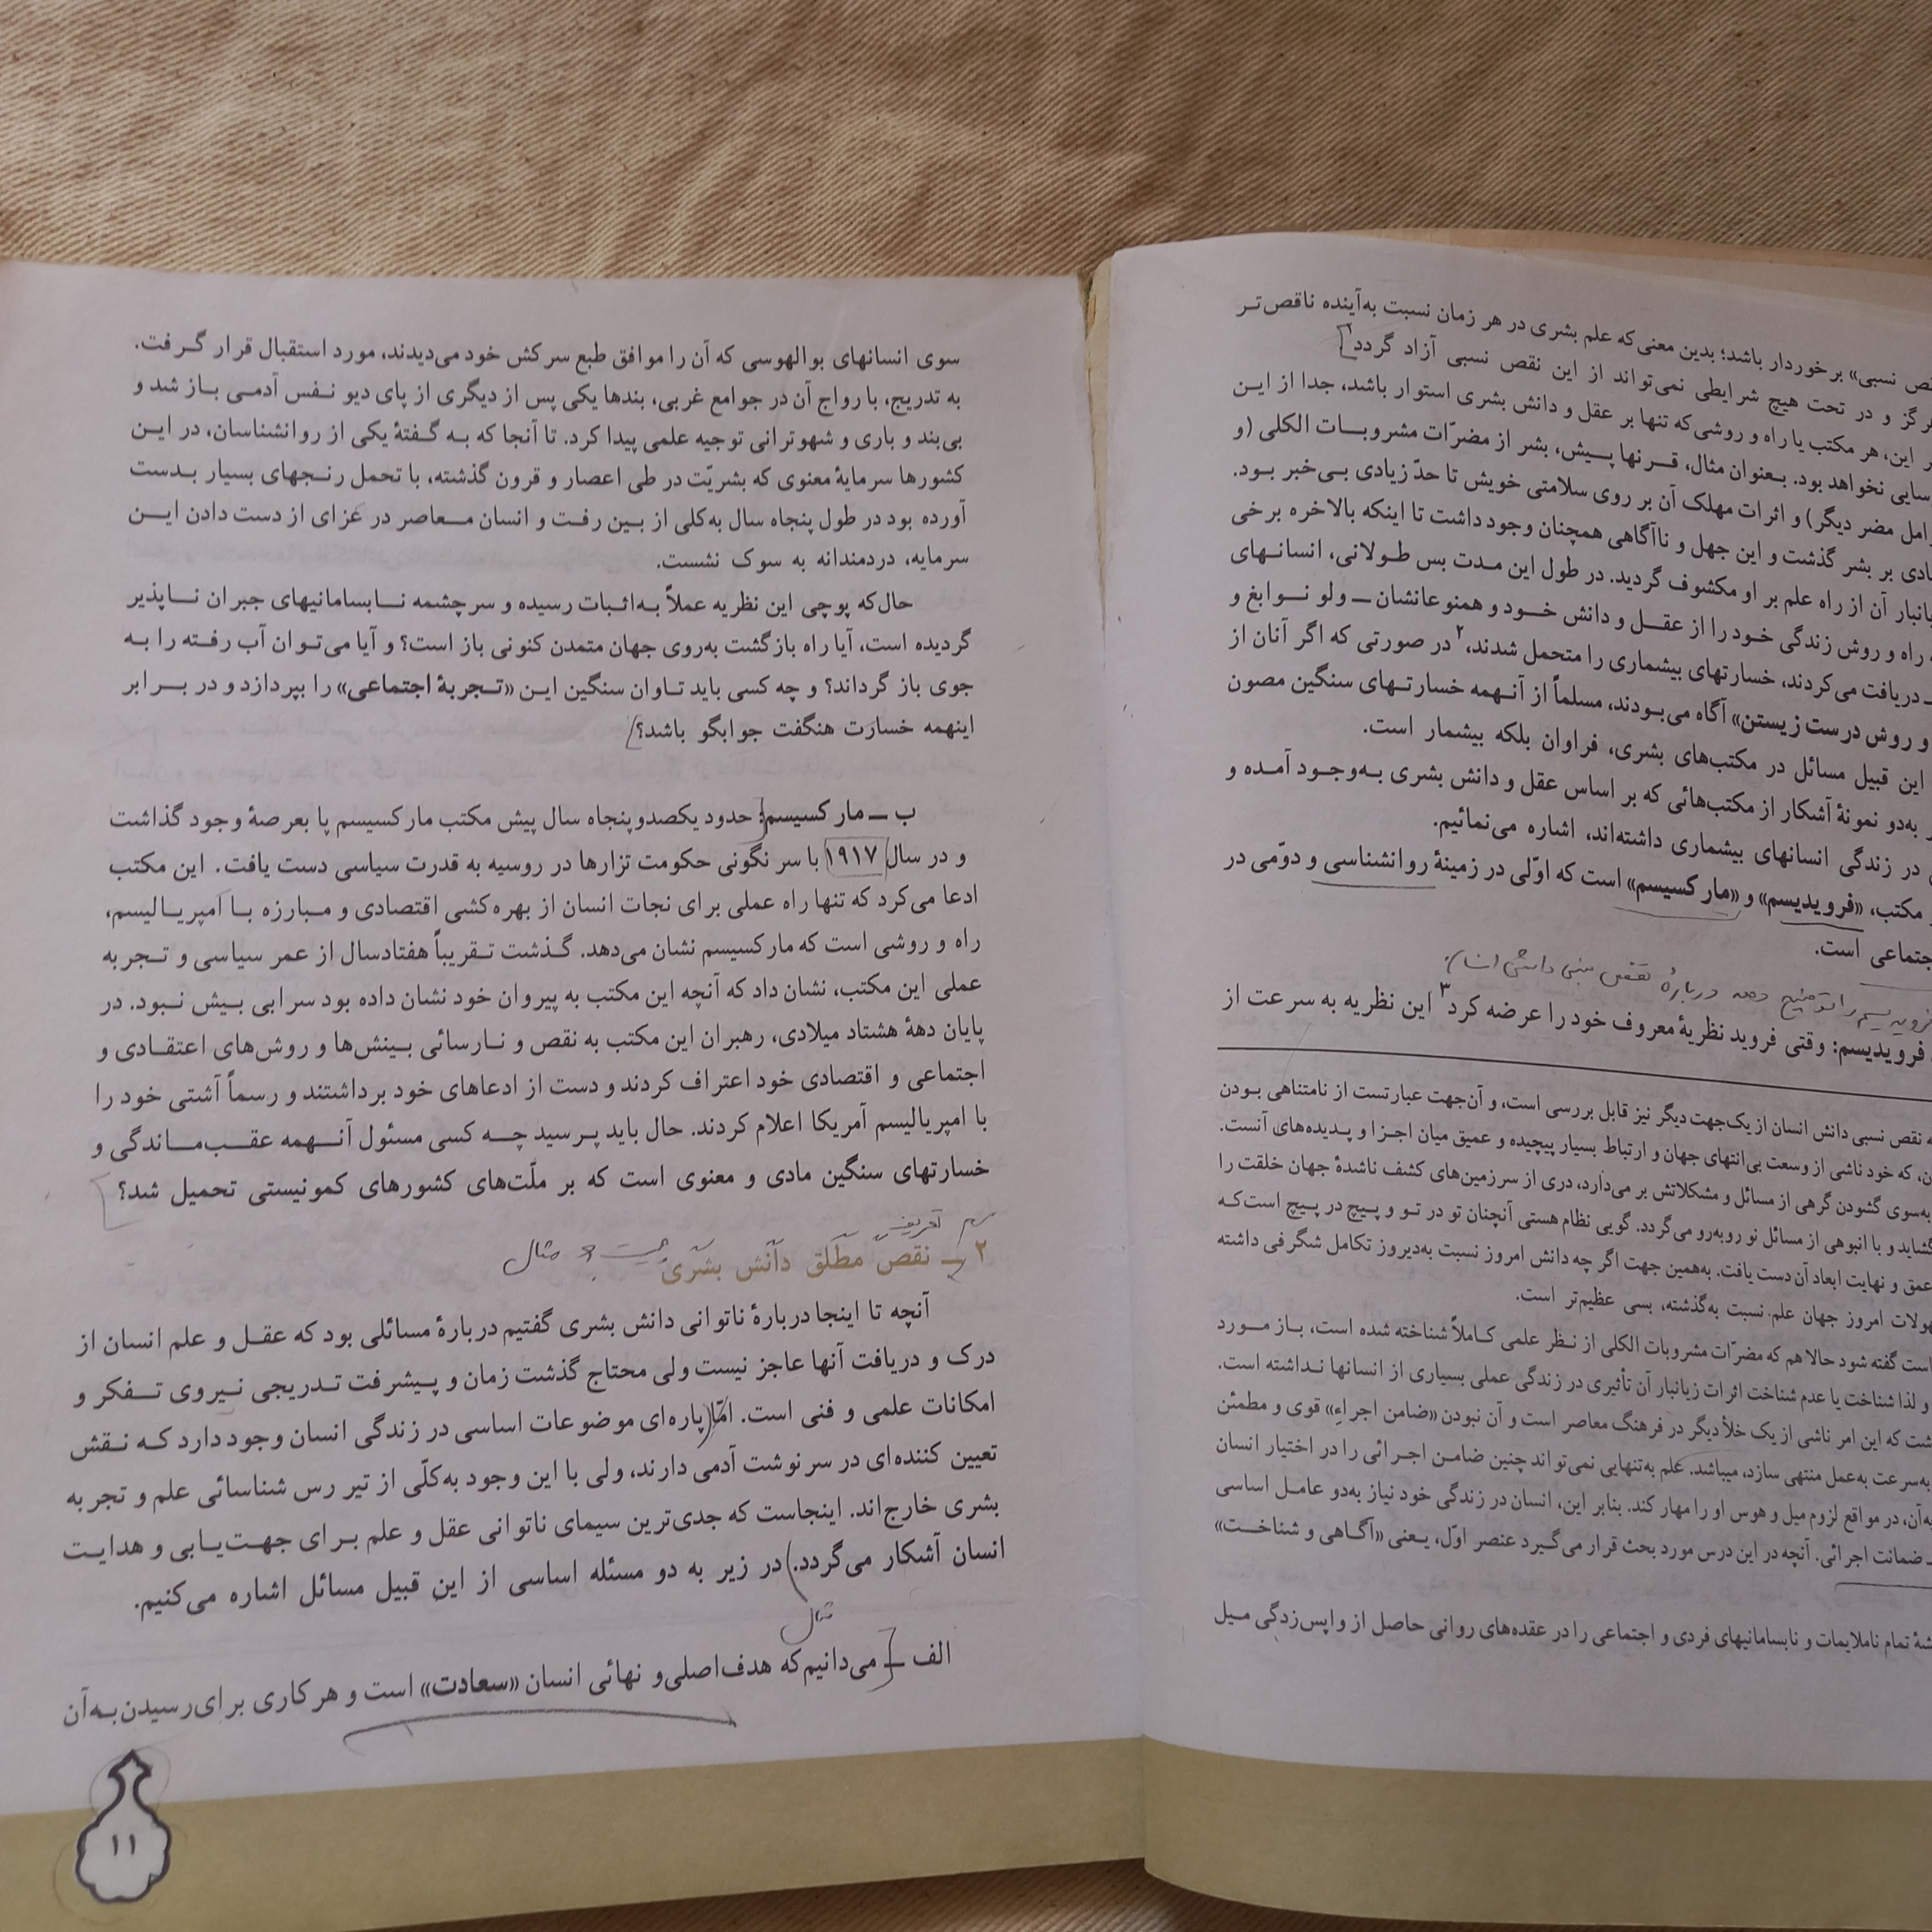 نقص نسبی» برخوردار باشد؛ بدین معنی‌که علم بشری در هر زمان نسبت به‌آینده ناقص‌تر
و در تحت هیچ شرایطی نمی‌تواند از این نقص نسبی آزاد گردد
این، هر مکتب یا راه و روشی‌که تنها بر عقل و دانش بشری استوار باشد، جدا از ایـن
نخواهد بود. بـعنوان مثال، قـرنها پـیش، بشر از مضرّات مشروبـات الکلی (و
مضر دیگر) و اثرات مهلک آن بر روی سلامتی خویش تا حدّ زیادی بـی‌خبر بـود.
بر بشر گذشت و این جهل و ناآگاهی همچنان وجود داشت تا اینکه بالاخره برخی
آن از راه علم بر او مکشوف گردید. در طول این مـدت بس طـولانی، انسانـهای
راه و روش زندگی خـود را از عقـل و دانش خـود و همنوعانشان ــ ولو نـوابغ و
دریافت می‌کردند، خسارتهای بیشماری را متحمل شدند،۲ در صورتی که اگر آنان از
و روش درست زیستن» آگاه می‌بـودند، مسلماً از آنـهمه خسارتـهای سنگین مصون
این قبیل مسائل در مکتب‌های بشری، فراوان بلکه بیشمار است.
به‌دو نمونهٔ آشکار از مکتب‌هائی که بر اساس عقل و دانش بشری بـه‌وجـود آمـده و
در زندگی انسانهای بیشماری داشته‌اند، اشاره می‌نمائیم.
مکتب، «فرویدیسم» و «مارکسیسم» است که اوّلی در زمینهٔ روانشناسی و دوّمی در
است.
را توضیح دهید دربارهٔ نقص نسبی دانش انسان
فرویدیسم: وقتی فروید نظریهٔ معروف خود را عرضه کرد۳ این نظریه به سرعت از
نقص نسبی دانش انسان از یک‌جهت دیگر نیز قابل بررسی است، و آن‌جهت عبارتست از نامتناهی بـودن
که خود ناشی از وسعت بی‌انتهای جهان و ارتباط بسیار پیچیده و عمیق میان اجـزا و پـدیده‌های آنست.
به‌سوی گشودن گرهی از مسائل و مشکلاتش بر می‌دارد، دری از سرزمین‌های کشف ناشدهٔ جهان خلقت را
و با انبوهی از مسائل نو روبه‌رو می‌گردد. گویی نظام هستی آنچنان تو در تـو و پـیچ در پـیچ است‌کـه
عمق و نهایت ابعاد آن دست یافت. به‌همین جهت اگر چه دانش امروز نسبت به‌دیروز تکامل شگرفی داشته
امروز جهان علم نسبت به‌گذشته، بسی عظیم‌تر است.
است گفته شود حالا هم که مضرّات مشروبات الکلی از نـظر علمی کـاملاً شناخته شده است، بـاز مـورد
و لذا شناخت یا عدم شناخت اثرات زیانبار آن تأثیری در زندگی عملی بسیاری از انسانها نـداشته است.
که این امر ناشی از یک خلأ دیگر در فرهنگ معاصر است و آن نبودن «ضامن اجراء» قوی و مطمئن
به‌سرعت به‌عمل منتهی سازد، میباشد. علم به‌تنهایی نمی‌تواند چنین ضامـن اجـرائی را در اختیار انسان
در مواقع لزوم میل و هوس او را مهار کند. بنابر این، انسان در زندگی خود نیاز به‌دو عامـل اساسی
ضمانت اجرائی. آنچه در این درس مورد بحث قرار می‌گـیرد عنصر اوّل، یـعنی «آگـاهی و شناخـت»
تمام ناملایمات و نابسامانیهای فردی و اجتماعی را در عقده‌های روانی حاصل از واپس‌زدگی مـیل
سوی انسانهای بوالهوسی که آن را موافق طبع سرکش خود می‌دیدند، مورد استقبال قرار گـرفت.
به تدریج، با رواج آن در جوامع غربی، بندها یکی پس از دیگری از پای دیو نـفس آدمـی بـاز شد و
بی‌بند و باری و شهوترانی توجیه علمی پیدا کرد. تا آنجا که بـه گـفتهٔ یکی از روانشناسان، در ایـن
کشورها سرمایهٔ معنوی که بشریّت در طی اعصار و قرون گذشته، با تحمل رنـجهای بسیار بـدست
آورده بود در طول پنجاه سال به‌کلی از بـین رفـت و انسان مـعاصر در عزای از دست دادن ایـن
سرمایه، دردمندانه به سوک نشست.
حال‌که پوچی این نظریه عملاً بـه‌اثـبات رسیده و سرچشمه نـابسامانیهای جبران نـاپذیر
گردیده است، آیا راه بازگشت به‌روی جهان متمدن کنونی باز است؟ و آیا می‌تـوان آب رفـته را بـه
جوی باز گرداند؟ و چه کسی باید تـاوان سنگین ایـن «تـجربهٔ اجتماعی» را بپردازد و در بـرابر
اینهمه خسارت هنگفت جوابگو باشد؟
ب ــ مارکسیسم: حدود یکصدوپنجاه سال پیش مکتب مارکسیسم پا بعرصهٔ وجود گذاشت
و در سال ۱۹۱۷ با سرنگونی حکومت تزارها در روسیه به قدرت سیاسی دست یافت. این مکتب
ادعا می‌کرد که تنها راه عملی برای نجات انسان از بهره‌کشی اقتصادی و مـبارزه بـا امپریـالیسم،
راه و روشی است که مارکسیسم نشان می‌دهد. گـذشت تـقریباً هفتادسال از عمر سیاسی و تـجربه
عملی این مکتب، نشان داد که آنچه این مکتب به پیروان خود نشان داده بود سرابی بـیش نـبود. در
پایان دههٔ هشتاد میلادی، رهبران این مکتب به نقص و نـارسائی بـینش‌ها و روش‌های اعتقـادی و
اجتماعی و اقتصادی خود اعتراف کردند و دست از ادعاهای خود برداشتند و رسماً آشتی خود را
با امپریالیسم آمریکا اعلام کردند. حال باید پـرسید چـه کسی مسئول آنـهمه عقـب‌مـاندگی و
خسارتهای سنگین مادی و معنوی است که بر ملّت‌های کشورهای کمونیستی تحمیل شد؟
تعریف
۲ ــ نقص مطلق دانش بشری چیست و مثال
آنچه تا اینجا دربارهٔ ناتوانی دانش بشری گفتیم دربارهٔ مسائلی بود که عقـل و علم انسان از
درک و دریافت آنها عاجز نیست ولی محتاج گذشت زمان و پـیشرفت تـدریجی نـیروی تـفکر و
امکانات علمی و فنی است. امّا پاره‌ای موضوعات اساسی در زندگی انسان وجود دارد کـه نـقش
تعیین کننده‌ای در سرنوشت آدمی دارند، ولی با این وجود به‌کلّی از تیر رس شناسائی علم و تجربه
بشری خارج‌اند. اینجاست که جدی‌ترین سیمای ناتوانی عقل و علم بـرای جهـت‌یـابی و هدایـت
انسان آشکار می‌گردد. در زیر به دو مسئله اساسی از این قبیل مسائل اشاره می‌کنیم.
مثال
الف ــ می‌دانیم‌که هدف‌اصلی‌و نهائی انسان «سعادت» است و هر کاری برای‌رسیدن‌بـه‌آن
۱۱